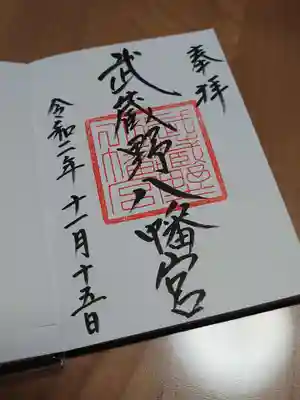 奉拝
武蔵野八幡宮
令和二年十一月十五日